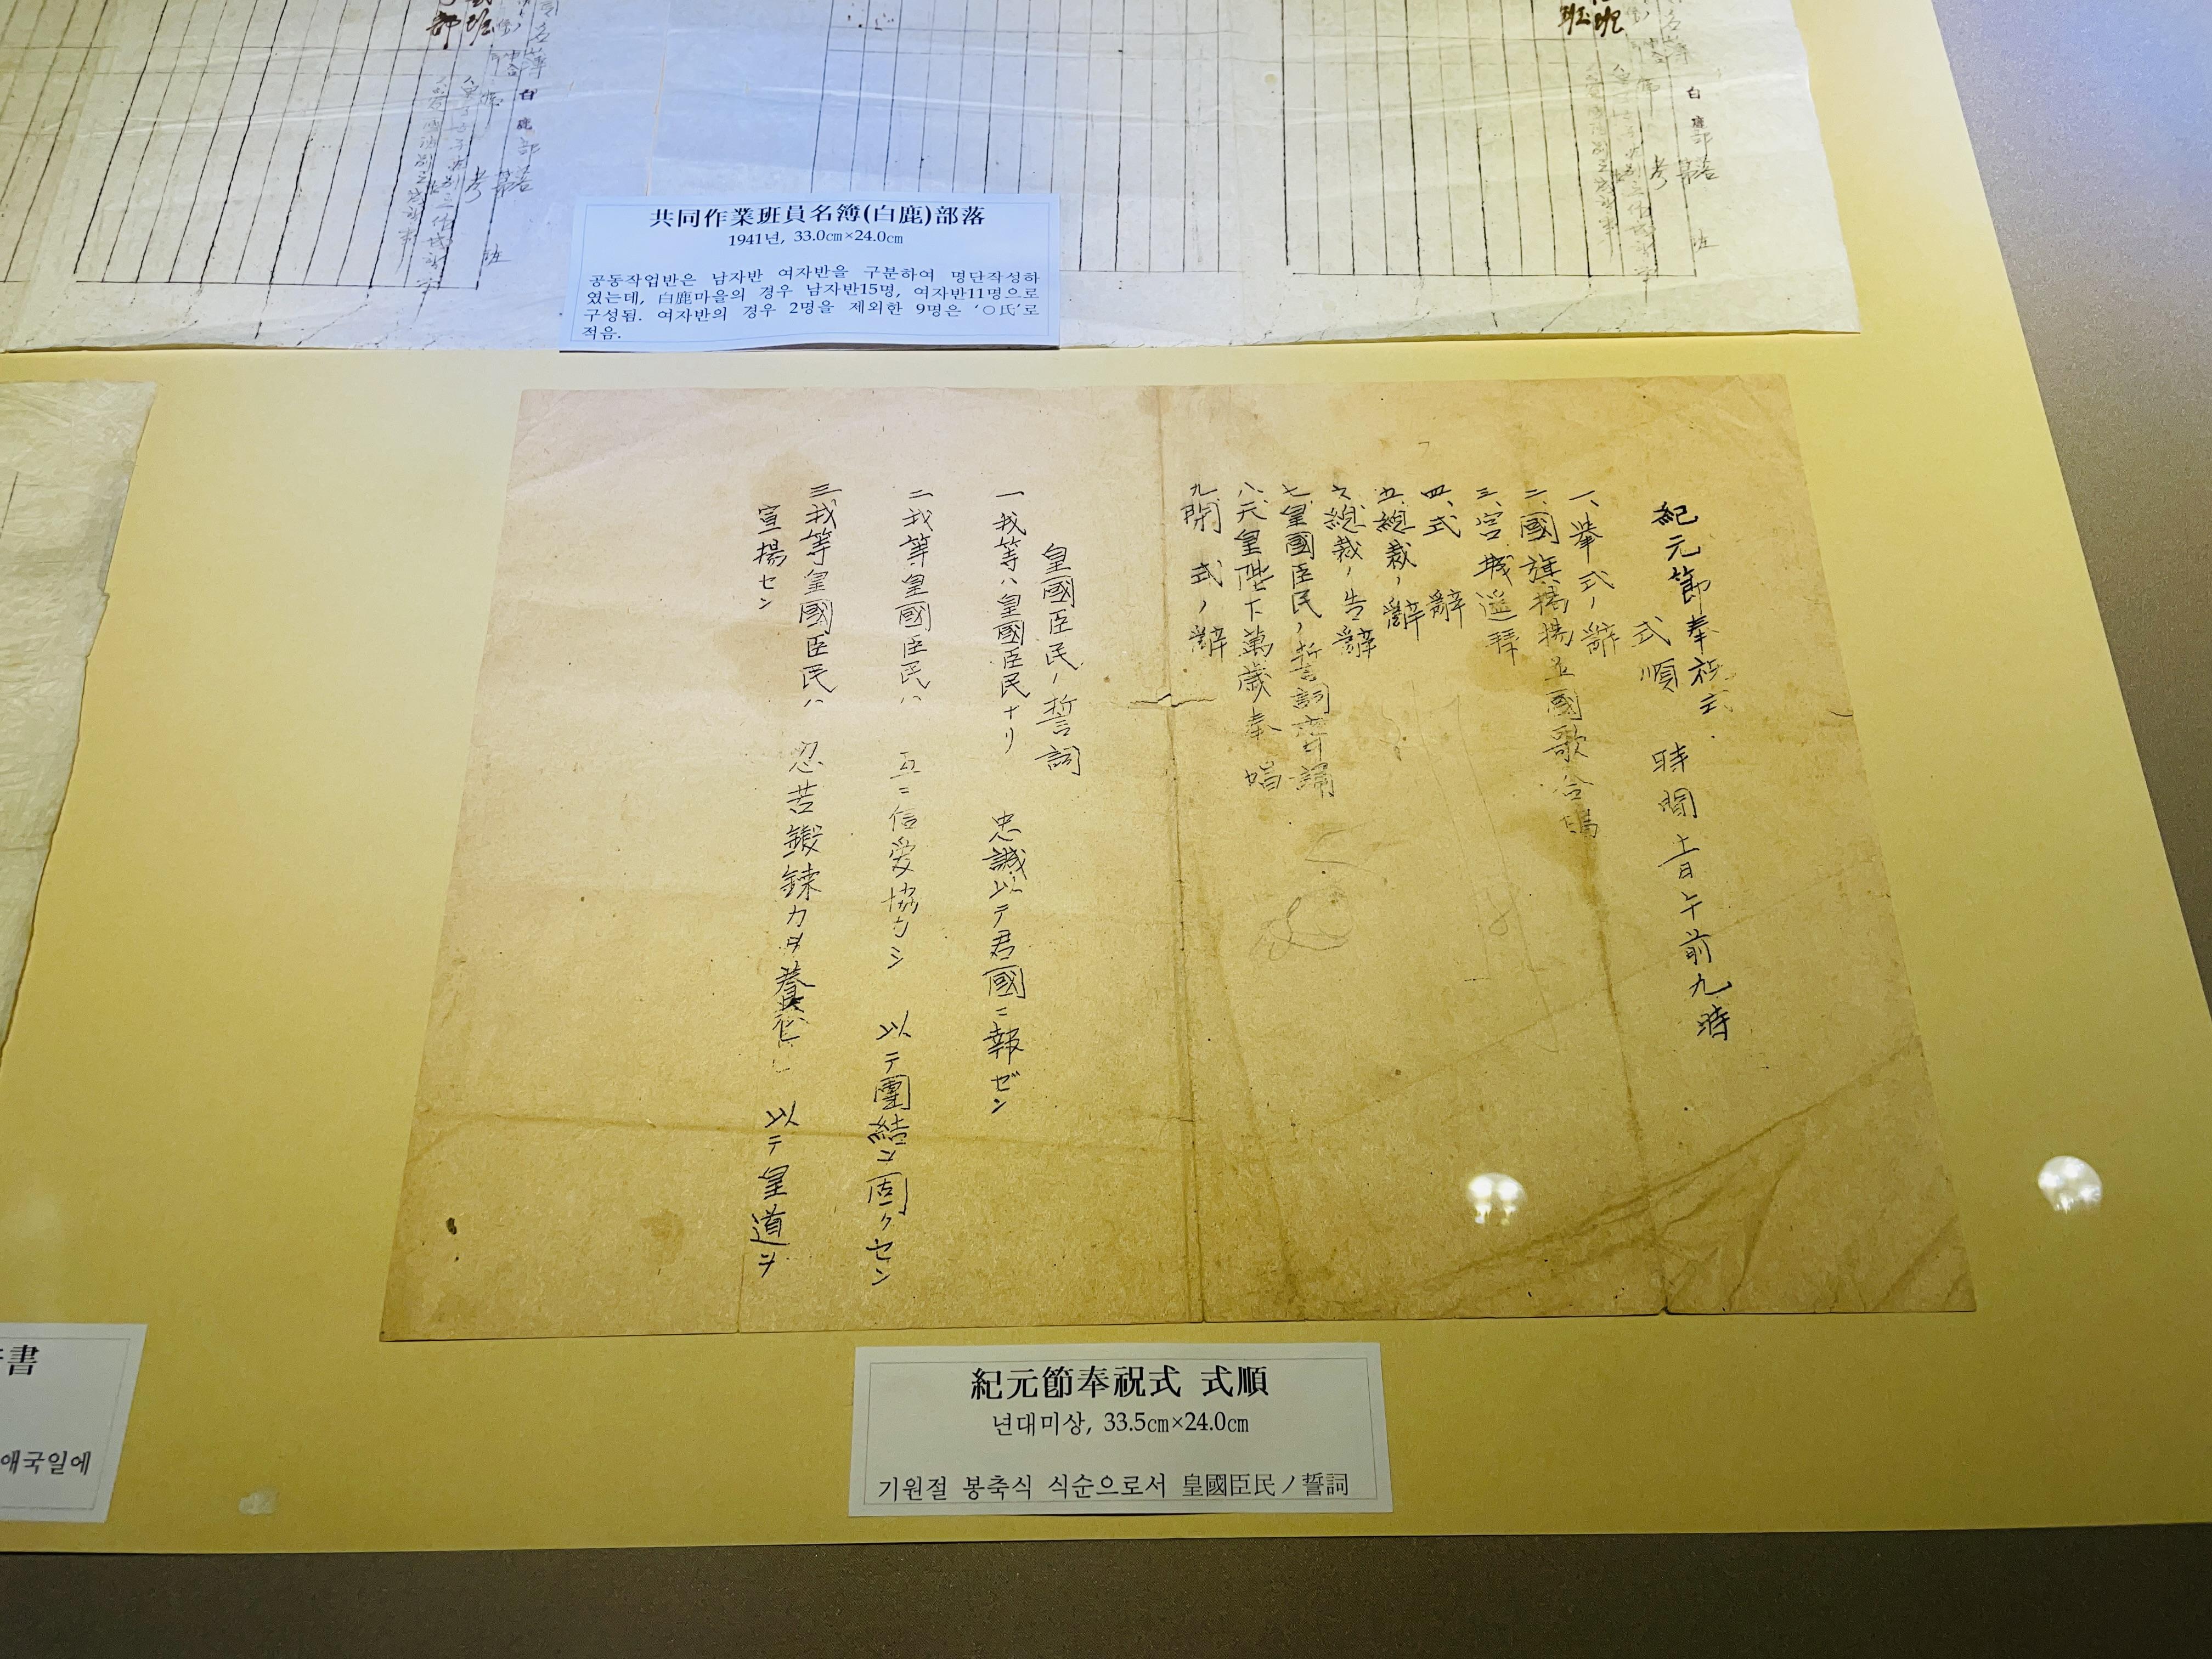 白
考
共同作業班員名簿(白鹿)部落
1941년, 33.0㎝×24.0㎝
공동작업반은 남자반 여자반을 구분하여 명단작성하
였는데, 白鹿마을의 경우 남자반15명, 여자반11명으로
구성됨. 여자반의 경우 2명을 제외한 9명은 '○氏'로
적음.
紀元節奉祝式
式順 時間 十一日午前九時
一、挙式ノ辭
二、國旗揭揚並國歌合唱
三、宮城遥拜
四、式辭
五、總裁ノ辭
六、總裁ノ告辭
七、皇國臣民ノ誓詞齊誦
八、天皇陛下萬歲奉唱
九、閉式ノ辭
皇國臣民ノ誓詞
一、我等ハ皇國臣民ナリ 忠誠以テ君國ニ報ゼン
二、我等皇國臣民ハ 互ニ信愛協力シ 以テ團結ヲ固クセン
三、我等皇國臣民ハ 忍苦鍛錬力ヲ養ヒ 以テ皇道ヲ
宣揚セン
紀元節奉祝式 式順
년대미상, 33.5㎝×24.0㎝
기원절 봉축식 식순으로서 皇國臣民ノ誓詞
書
애국일에